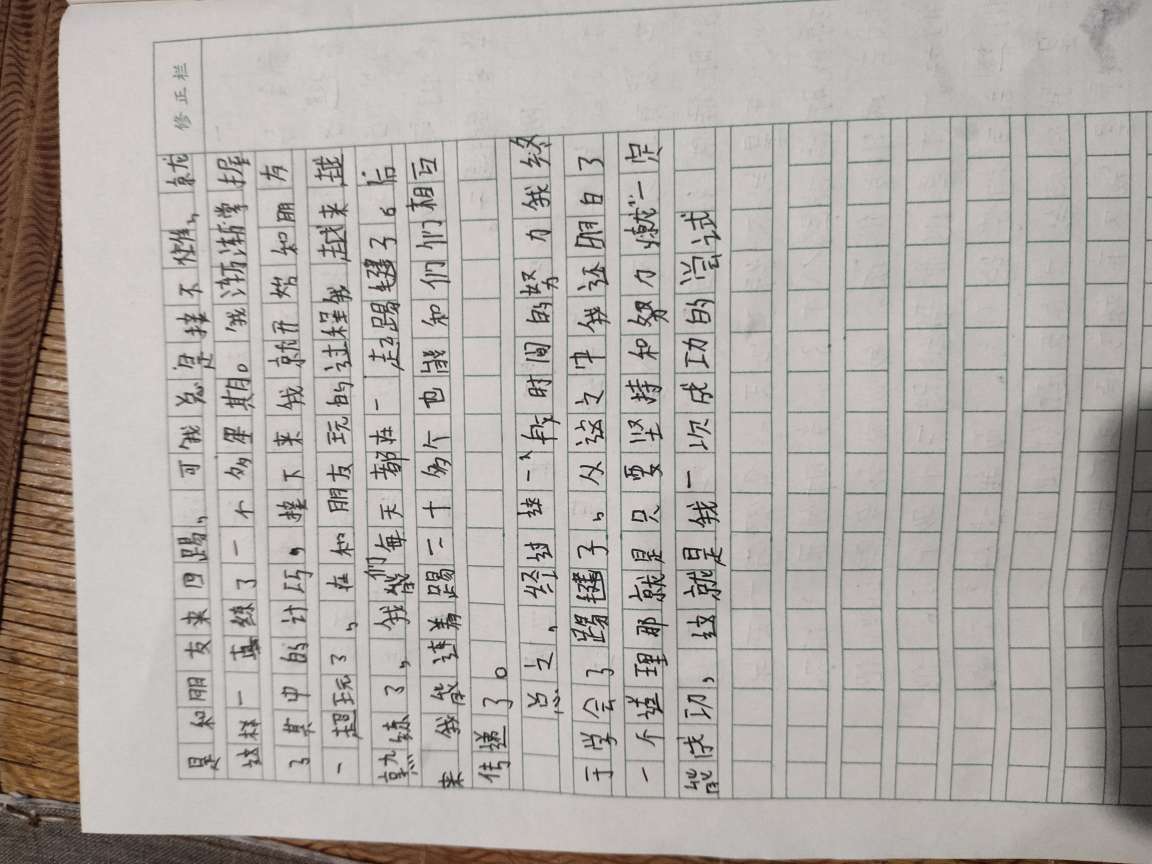 修正栏
是和朋友来回踢，可我总是接不住，就
这样一直练了一个多星期。我渐渐掌握
了其中的计巧，接下来我就开始和朋友
一起玩了，在和朋友玩的过程我越来越
熟练了，我们每天都在一起踢毽子。后
来我能连着踢二十多个也能和们们相互
传递了。
总之，经过这一段时间的努力我终
于学会了踢毽子，从这之中我还明白了
一个道理那就是只要坚持和努力就一定
能成功，这就是我一次成功的尝试